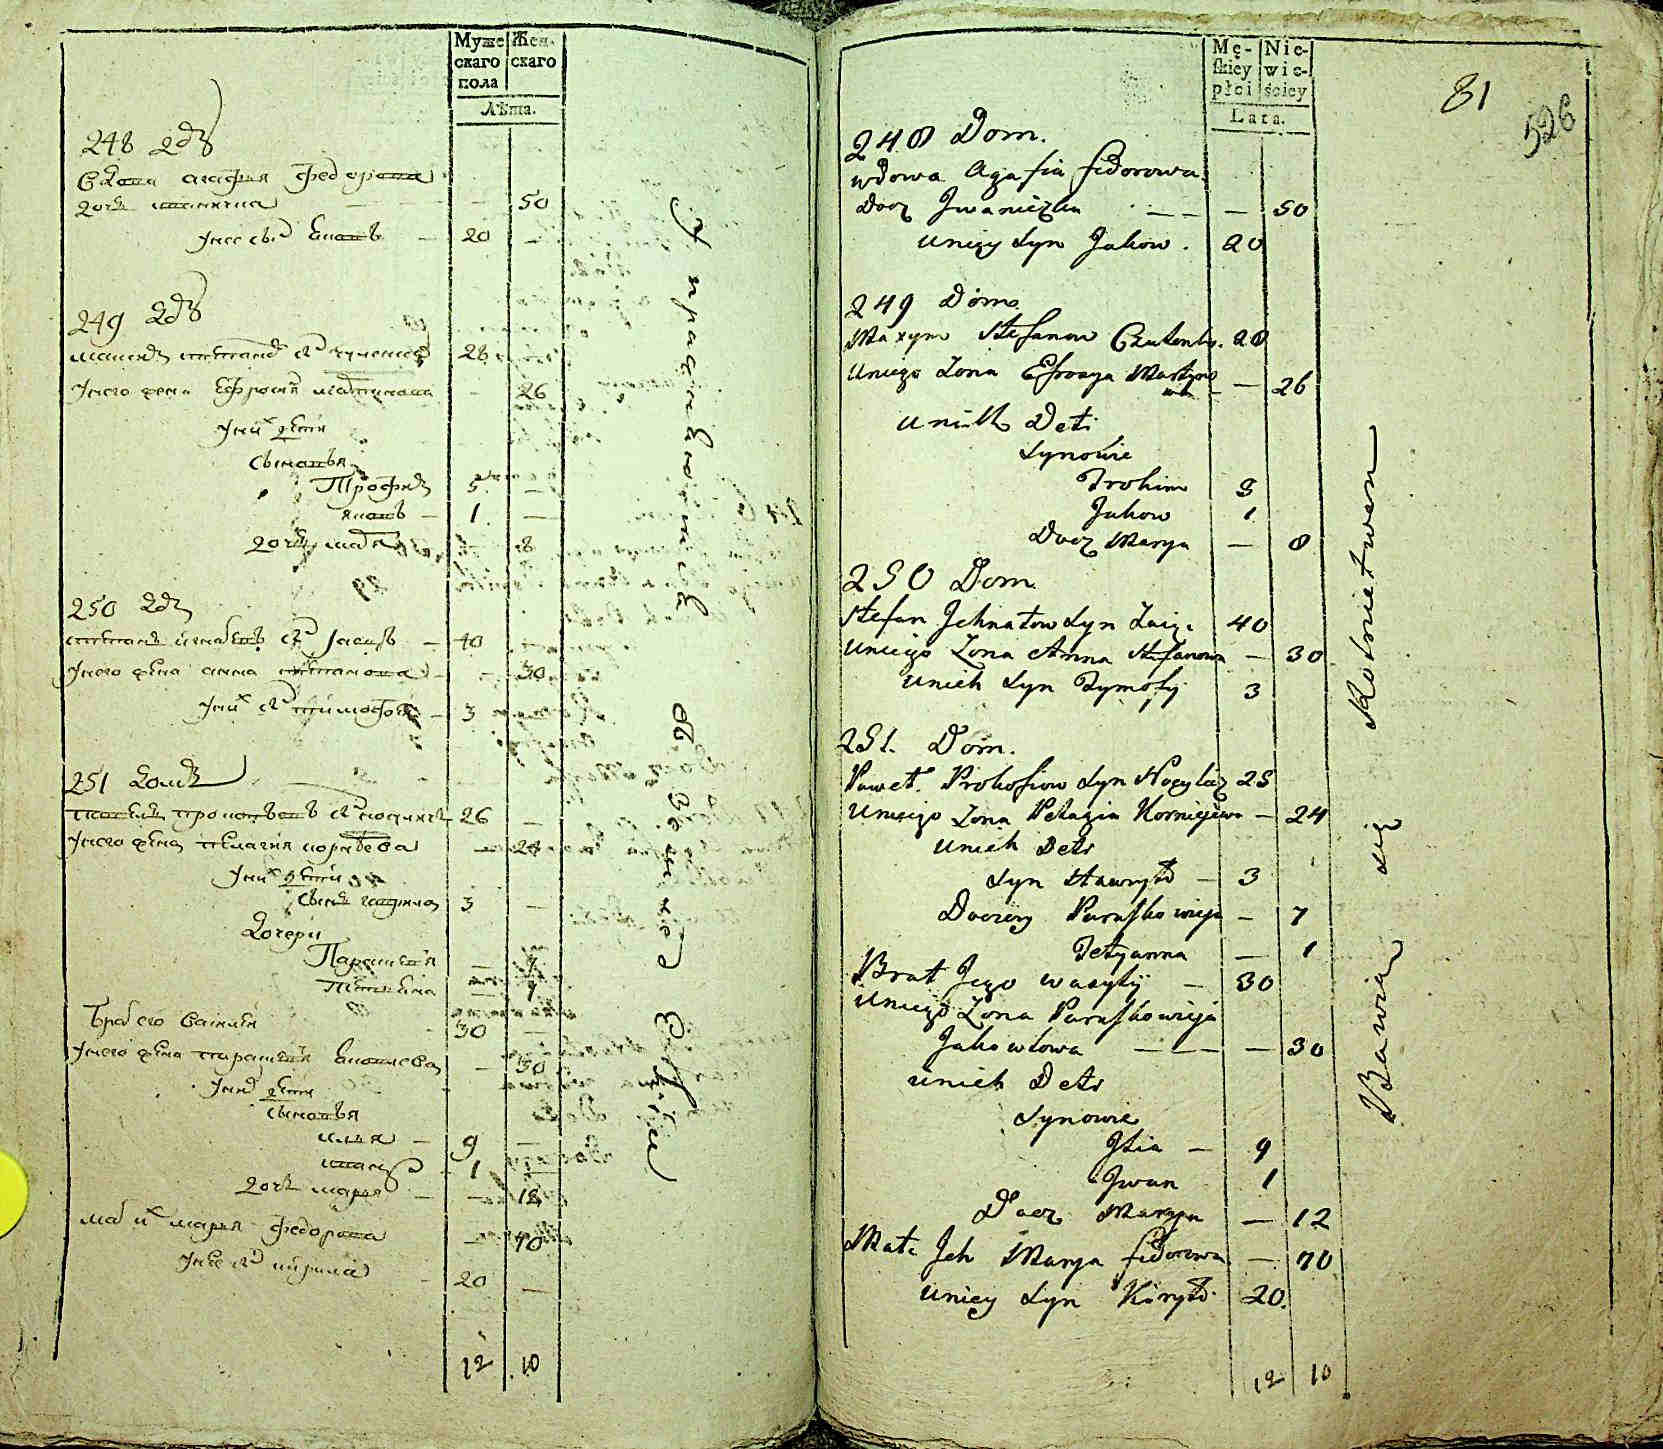 Муже
скаго
пола
Жен-
скаго
Лѣта.
248 здѣ
вдова агафия федорова
дочь иванича — — — 50
у нее сынъ яковъ — 20 —
249 здѣ
максимъ степановъ 28
у него жена Ефросия мартинова — 26
у них дѣти
сыновья
Трофимъ 5 —
яковъ — 1 —
дочь марья — 8
250 здѣ
степанъ игнатовъ сынъ заецъ — 40
у него жена анна степанова — 30
у них сынъ тимофей — 3
251 домъ
павелъ прокофьевъ сынъ 26 —
у него жена пелагия корнѣева — 24
у них дѣти
сынъ гаврила 3 —
дочери
Парасковия — 7
Татьяна — 1
Братъ его василий 30 —
у него жена парасковия яковлева — 30
у них дѣти
сыновья
илья — 9 —
иванъ 1
дочь марья — — 12
мать их марья федорова — 70
у нее сынъ кирила 20 —
12 10
81
526
Mę-
skiey
płci
Nie-
wie-
ściey
Lata.
248 Dom.
wdowa Agafia fidorowa
Docz Jwaniczka — — — 50
unieży Syn Jakow. 20
249 Dom
Maxym Stefanow 28
Uniego Zona Efrozya Martyno
wa — 26
unich Deti
Synowie
Trohim 5
Jakow 1
Docz Marya — 8
250 Dom
Stefan Jehnatow Syn Zaiąc 40
Uniego Zona Anna Stefanowa — 30
Unich Syn Tymofy 3
251. Dom.
Paweł Prokofiow Syn 25
Uniego Zona Pelagia Korniejewa — 24
Unich Deti
Syn Hawryło — 3
Doczery Paraskowieja — 7
Tetyanna — 1
Brat Jego wasyly — 30
Uniego Zona Paraskowieja
Jakowlowa — — — — 30
unich Deti
Synowie
Jlia — 9
Jwan 1
Docz Marya — 12
Mat. Jch Marya fidorowa — 70
Uniey Syn Kiryło 20.
12 10
Bawią się Rolnictwem